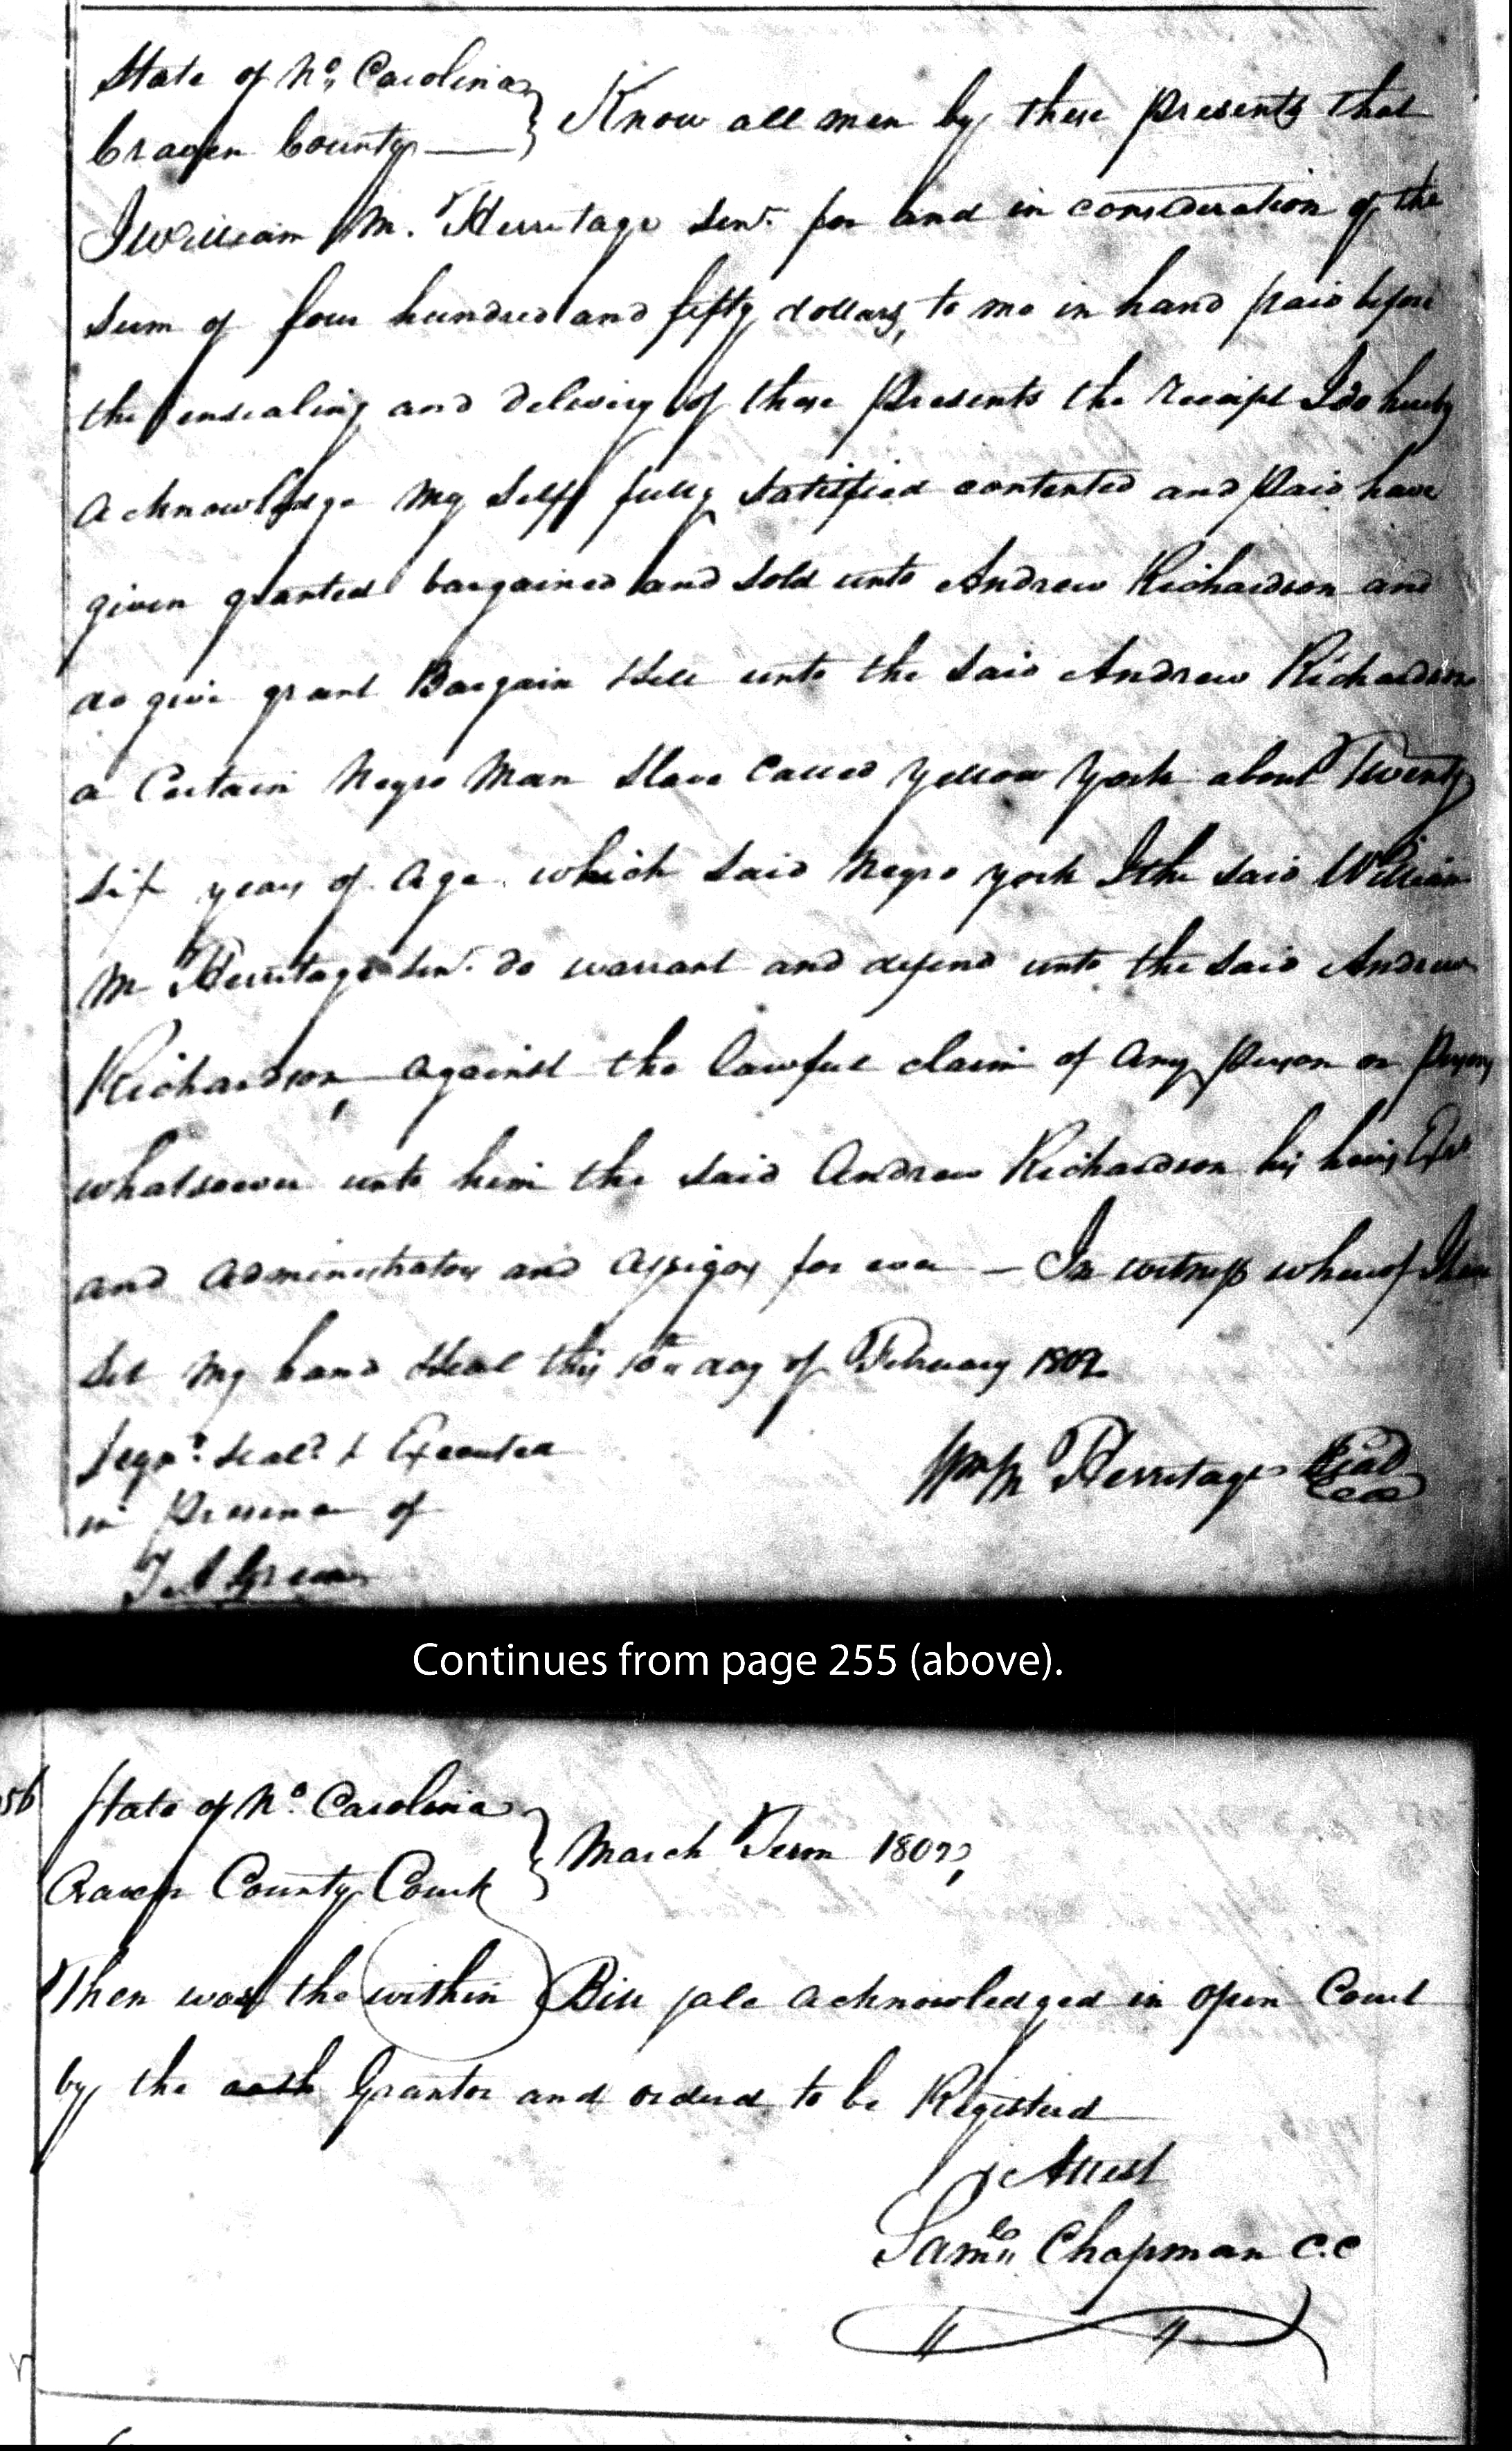 State of No, Carolina }
Craven County — } Know all men by these presents that
I William M. Herritage Senr. for and in consideration of the
Sum of four hundred and fifty dollars, to me in hand paid before
the ensealing and delivery of these Presents the receipt I do hereby
acknowledge my Self fully Satisfied contented and Paid have
given granted bargained and Sold unto Andrew Richardson and
do give grant Bargain & Sell unto the Said Andrew Richardson
a Certain Negro Man Slave Called Yellow York about Twenty
Six years of Age. which Said Negro York I the Said William
M Herritage Senr. do warrant and defend unto the Said Andrew
Richardson, against the lawful claim of any person or persons
whatsoever unto him the Said Andrew Richardson his heirs Exrs
and administrators and assigns for ever — In witness whereof I have
Set my hand & Seal this 10th day of February 1802
Signd. Seald. & Executed
in Presence of
Wm M Herritage Seal
T A Green
Continues from page 255 (above).
56
State of No. Carolina }
Craven County Court } March Term 1802,
Then was the within Bill sale acknowledged in open Court
by the oath Grantor and orderd to be Registerd
Attest
Saml. Chapman C.C